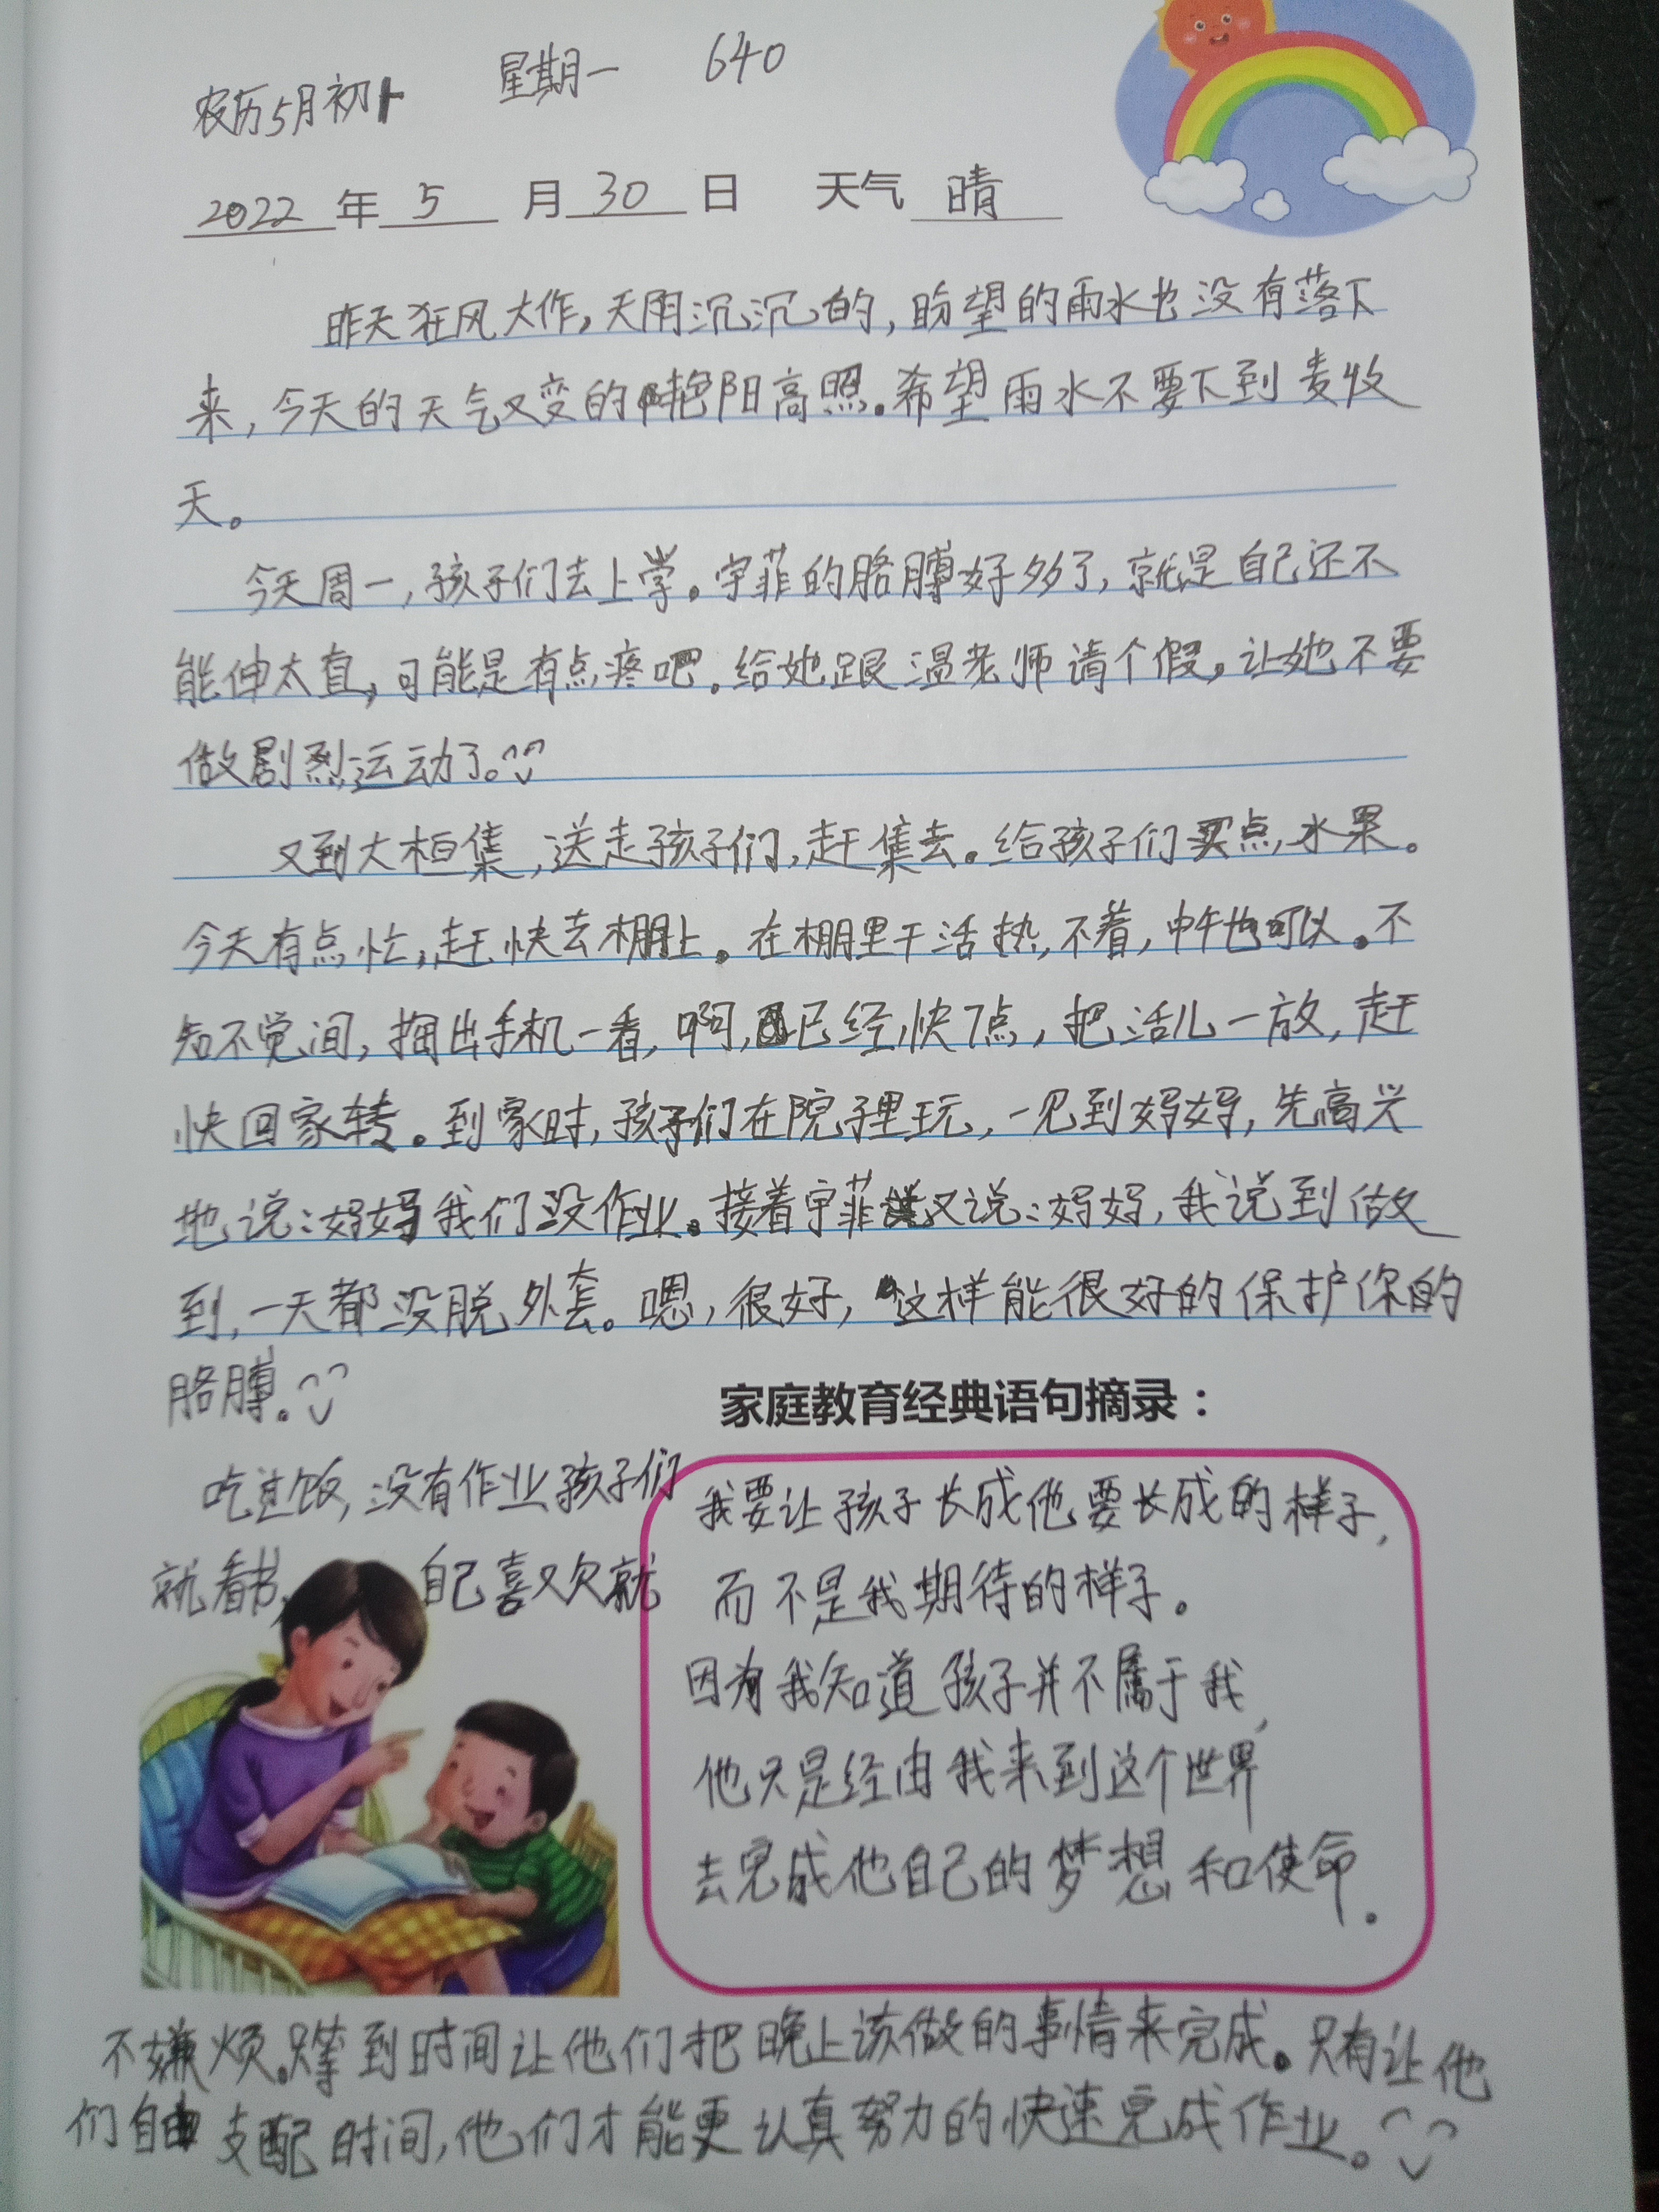 农历5月初1 星期一 640
2022年5月30日 天气 晴
昨天狂风大作,天阴沉沉的,盼望的雨水也没有落下
来,今天的天气又变的艳阳高照。希望雨水不要下到麦收
天。
今天周一,孩子们去上学。宇菲的胳膊好多了,就是自己还不
能伸太直,可能是有点疼吧。给她跟温老师请个假,让她不要
做剧烈运动了。
又到大桓集,送走孩子们,赶集去。给孩子们买点水果。
今天有点忙,赶快去棚上。在棚里干活热不着,中午也可以。不
知不觉间,掏出手机一看,啊,已经快7点,把活儿一放,赶
快回家转。到家时,孩子们在院子里玩,一见到妈妈,先高兴
地说:妈妈我们没作业。接着宇菲又说:妈妈,我说到做
到,一天都没脱外套。嗯,很好,这样能很好的保护你的
胳膊。
吃过饭,没有作业孩子们
就看书,自己喜欢就
家庭教育经典语句摘录:
我要让孩子长成他要长成的样子,
而不是我期待的样子。
因为我知道孩子并不属于我,
他只是经由我来到这个世界
去完成他自己的梦想和使命.
不嫌烦。只等到时间让他们把晚上该做的事情来完成。只有让他
们自由支配时间,他们才能更认真努力的快速完成作业。